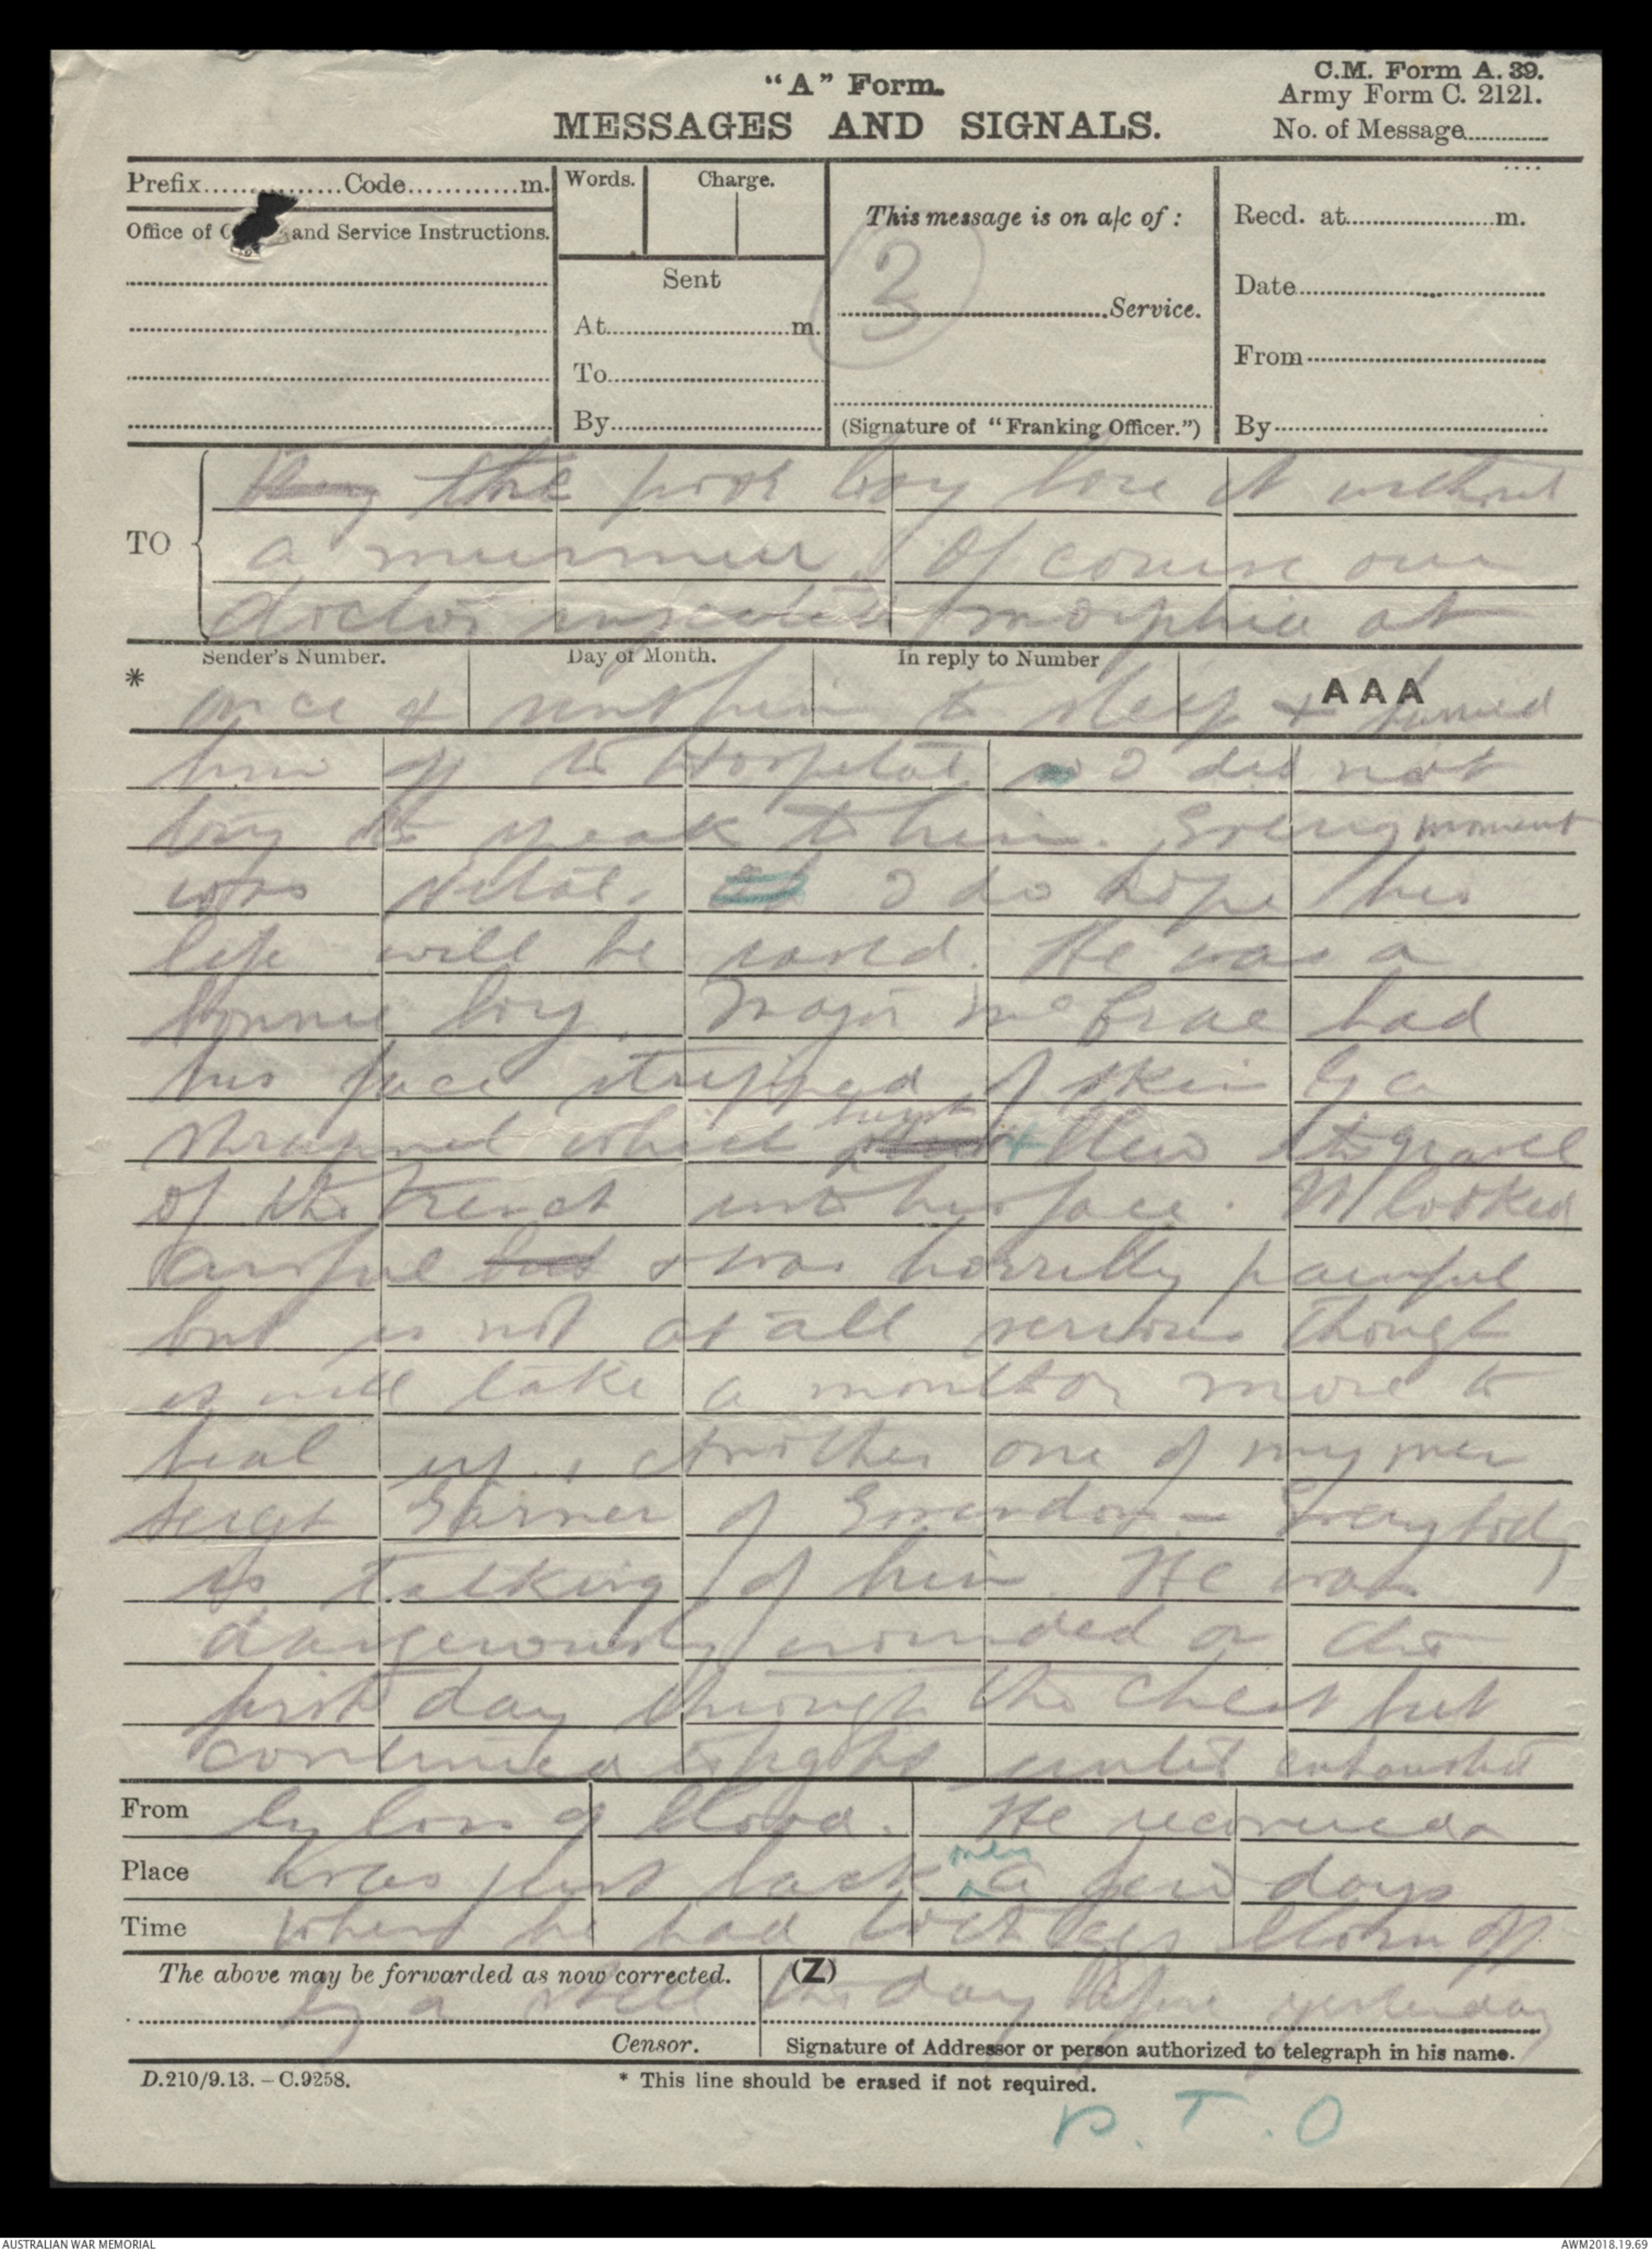 "A" Form.
MESSAGES AND SIGNALS.
C.M. Form A. 39.
Army Form C. 2121.
No. of Message............
Prefix...............Code............m.
Words.
Charge.
This message is on a/c of :
Recd. at......................m.
Office of and Service Instructions.
Sent
3
Date.....................................
...........................................Service.
At............................m.
From....................................
To.................................
By.................................
(Signature of "Franking Officer.")
By.........................................
the poor boy bore it without
TO
a murmur. Of course our
doctor injected morphia at
Sender's Number.
Day of Month.
In reply to Number
* AAA
once & sent him to sleep & hurried
him off to Hospital. I did not
try to speak to him. Every moment
was vital. I do hope his
life will be saved. He was a
bonnie boy. Major McCrae had
his face stripped of skin by a
shrapnel which burst & blew the gravel
of the trench into his face. It looked
awful but & was horribly painful
but is not at all serious though
it will take a month or more to
heal up. Another one of my men
Sergt of Essendon - Everybody
is talking of him. He was
dangerously wounded on the
first day through the chest but
continued to fight until exhausted
From by loss of blood. He recovered &
Place was just back only a few days
Time when he had both legs blown off
The above may be forwarded as now corrected.
(Z)
by a shell the day before yesterday
Censor.
Signature of Addressor or person authorized to telegraph in his name.
D.210/9.13. – C.9258.
* This line should be erased if not required.
P.T.O
AUSTRALIAN WAR MEMORIAL
AWM2018.19.69